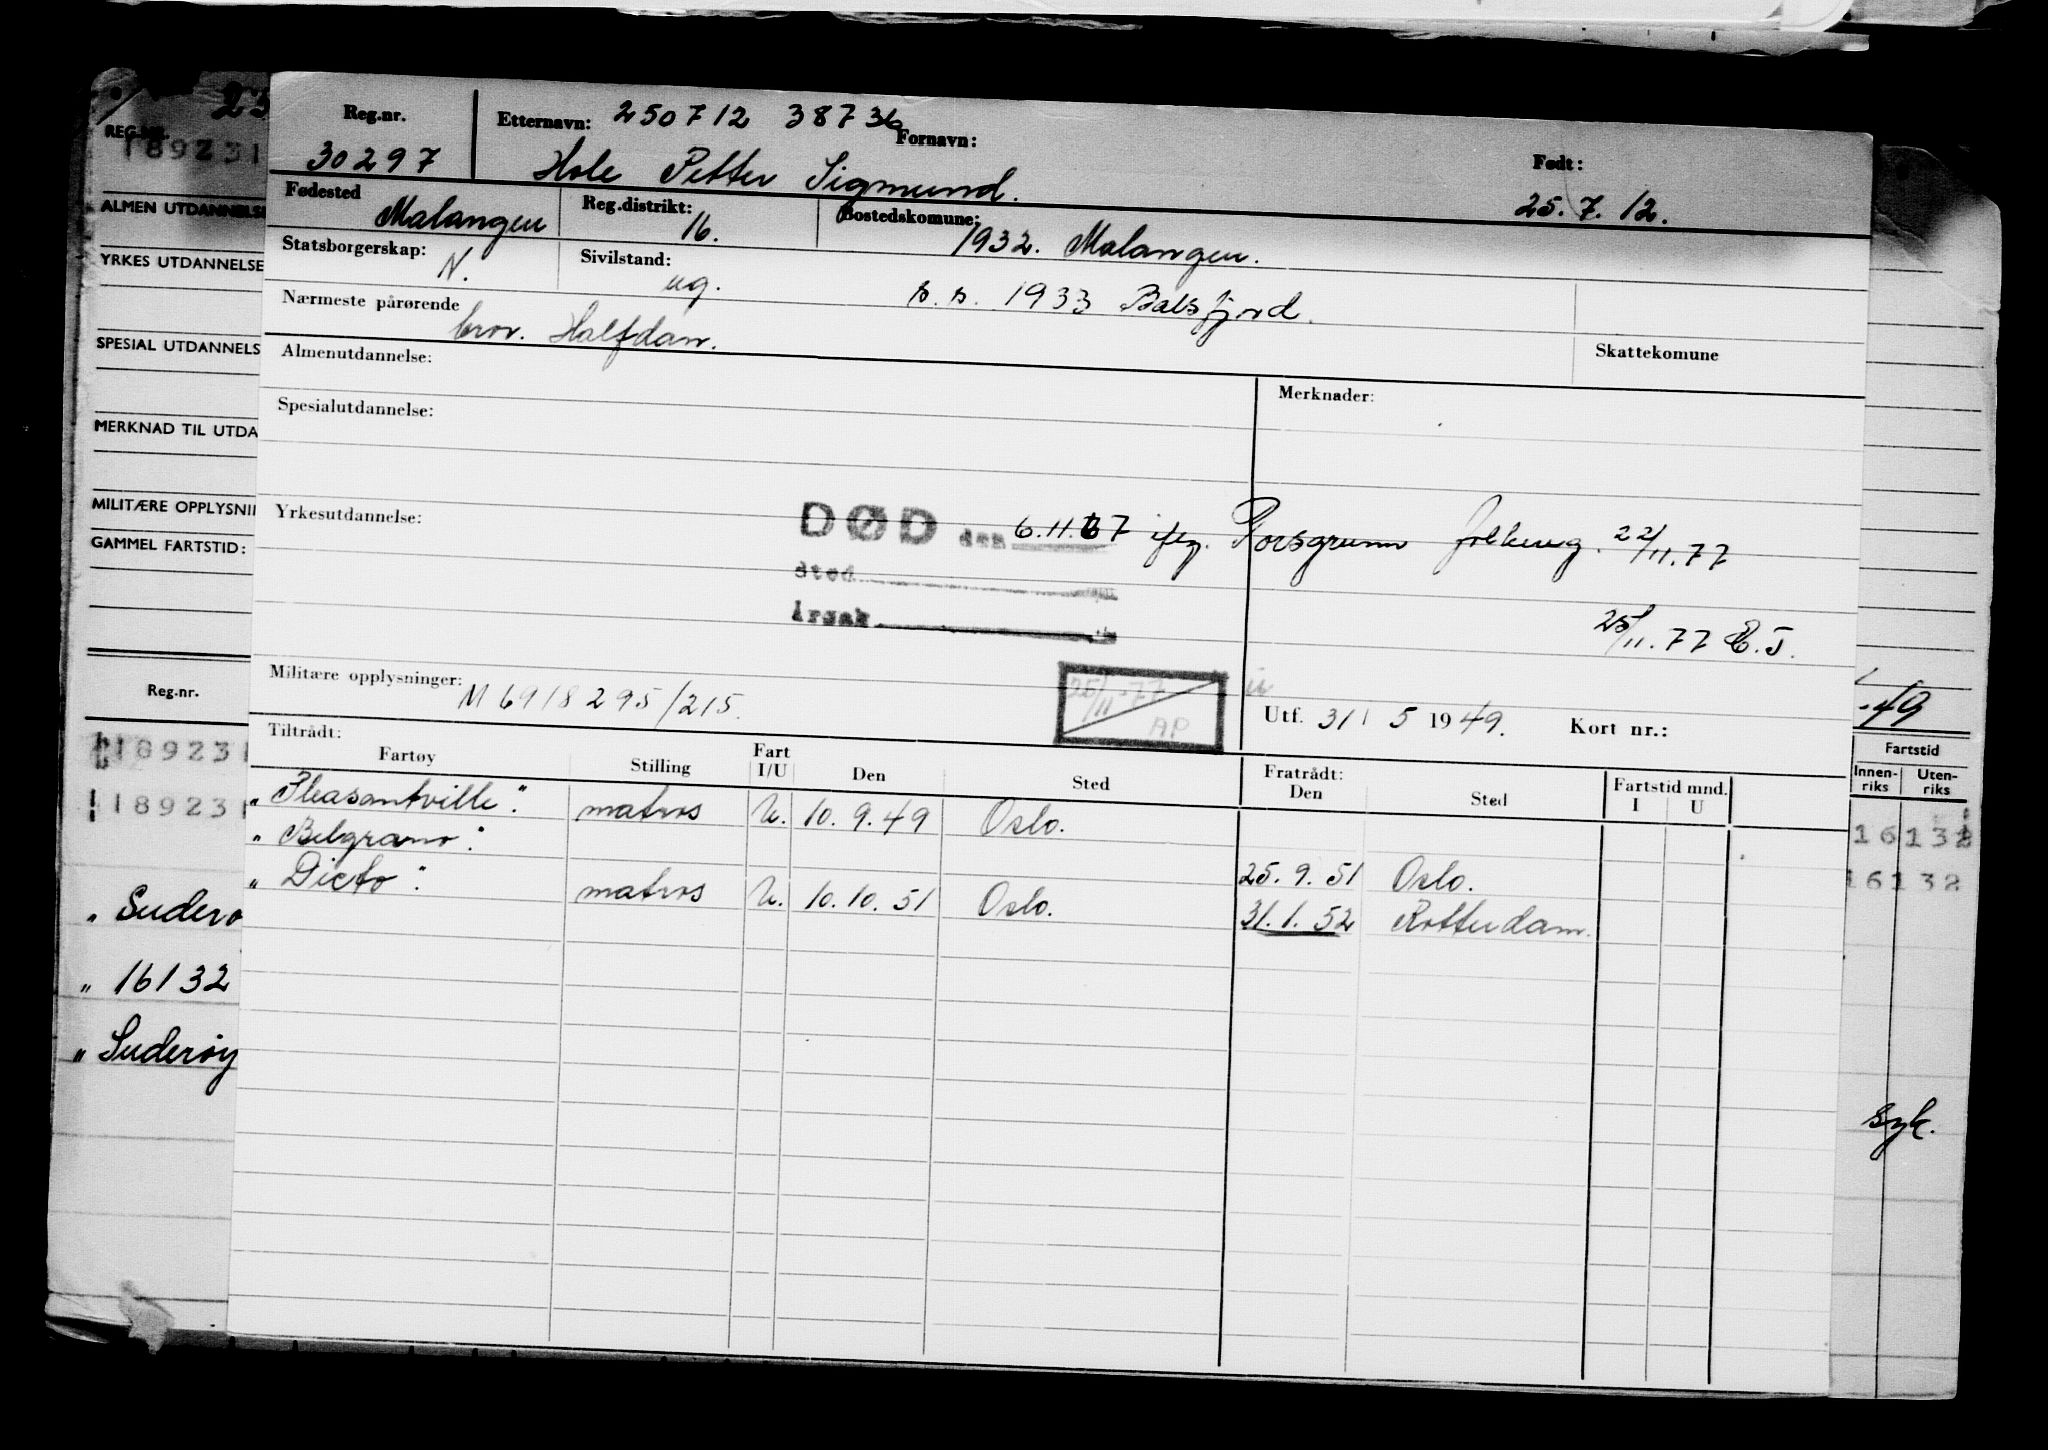 Reg.nr. Etternavn: 250712 38736 Fornavn: Født:
30297 Hole Petter Sigmund. 25.7.12.
Fødested Malangen Reg.distrikt: 16. Bostedskomune: 1932. Malangen.
Statsborgerskap: N. Sivilstand: ug. s.s. 1933 Balsfjord.
Nærmeste pårørende bror. Halfdan.
Almenutdannelse: Skattekomune
Spesialutdannelse: Merknader:
Yrkesutdannelse: DØD den 6.11.67 iflg. Porsgrunn folkereg. 22/11.77
Sted
Årsak 25/11.77 E.J.
Militære opplysninger: M 6918295/215. 25/11-77 AP
Utf. 31/5 1949. Kort nr.:
Tiltrådt: Fratrådt: Fartstid mnd.
Fartøy Stilling Fart I/U Den Sted Den Sted I U
"Pleasantville". matros U. 10.9.49 Oslo.
"Belgrano". 25.9.51 Oslo.
"Dicto". matros U. 10.10.51 Oslo. 31.1.52 Rotterdam.
REG.NR.
189231
ALMEN UTDANNELSE
YRKES UTDANNELSE
SPESIAL UTDANNELS
MERKNAD TIL UTDA
MILITÆRE OPPLYSNI
GAMMEL FARTSTID:
Reg.nr.
189231
189231
" Suderø
" 16132
" Suderøy
-49
Fartstid
Innen-riks Uten-riks
16132
16132
syk.